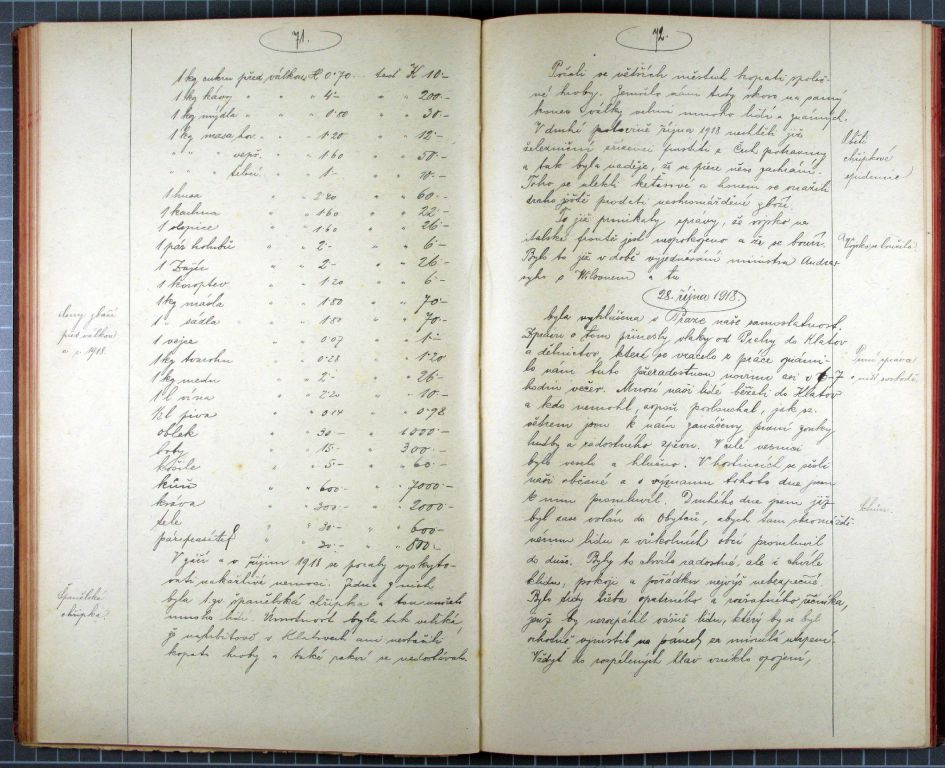 71.
1 kg cukru před válkou K 0·70 ... teď K 10·-
1 kg kávy " " " 4·- " " 200·-
1 kg mýdla " " " 0·80 " " 30·-
1 kg masa hov. " " 1·20 " " 12·-
" " " vepř. " " 1·60 " " 50·-
" " " telecí " " 1·- " " 10·-
1 husa " " 2·40 " " 60·-
1 kachna " " 1·60 " " 22·-
1 slepice " " 1·60 " " 26·-
1 pár holubů " " 2·- " " 6·-
1 Zajíc " " 2·- " " 26·-
1 koroptev " " 1·20 " " 6·-
1 kg másla " " 1·80 " " 70·-
1 " sádla " " 1·80 " " 70·-
1 vejce " " 0·07 " " 1·-
1 kg tvarohu " " 0·28 " " 1·20
1 kg medu " " 2·- " " 26·-
1 l vína " " 2·20 " " 10·-
1 l piva " " 0·14 " " 0·98
oblek " " 30·- " " 1000·-
boty " " 15·- " " 300·-
košile " " 5·- " " 60·-
kůň " " 600·- " " 7000·-
kráva " " 300·- " " 2000·-
tele " " 30·- " " 600·-
pár " " 20·- " " 800·-
Ceny zboží
před válkou
a r. 1918.
V září a v říjnu 1918 se počaly vyskyto-
vati nakažlivé nemoci. Jedna z nich
byla t. zv. španělská chřipka a
mnoho lidí. Úmrtnost byla tak veliká,
že v Klatovech ani nestačili
kopati hroby a také rakví se nedostávalo.
Španělská
chřipka.
72.
Počali ve větších městech kopati společ-
né hroby. Zemřelo nám tedy skoro na samý
konec války velmi mnoho lidí známých.
V druhé polovině října 1918 nechtěli již
železniční zřízenci pustiti z Čech potraviny
a tak byla naděje, že se přece něco zachrání.
Toho se ulekli keťasové a honem se snažili
draho ještě prodati nashromážděné zboží.
Oběti
chřipkové
epidemie
To již pronikaly zprávy, že vojsko na
italské frontě jest nespokojeno a že se bouří.
Bylo to již v době vyjednávání ministra Andras-
syho s Wilsonem a tu
Vojsko se bouřilo.
28. října 1918.
byla vyhlášena v Praze naše samostatnost.
Zprávu o tom přinesly vlaky od Prahy do Klatov
a dělnictvo, které se vracelo z práce oznámi-
lo nám tuto přeradostnou novinu asi v 6-7
hodin večer. Mnozí naši lidé běželi do Klatov
a kdo nemohl, aspoň poslouchal, jak se
větrem jsou k nám zanášeny písní zvuky
hudby a radostného zpěvu. V celé vesnici
bylo veselo a hlučno. V hostincích se sešli
naši občané a o významu tohoto dne jsem
k nim promluvil. Druhého dne jsem již
byl zase volán do Obytců, abych tam shromáždě-
nému lidu z okolních obcí promluvil
do duše. Byly to chvíle radostné, ale i chvíle
klidu, pokoji a pořádku nejvýš nebezpečné.
Bylo tedy třeba opatrného a rozvážného řečníka,
jenž by nerozpálil vášně lidu, který by se byl
ochotně vymstil na panech za minulá utrpení.
Vždyť do rozpálených hlav vniklo opojení,
První zpráva
o naší svobodě.